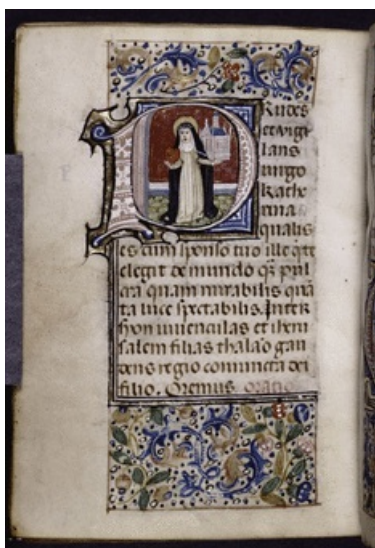 PRudes
et vigi
lans
virgo
kathe
rina
qualis
es cum sponso tuo ille q te
elegit de mundo q̃ pul
cra quam mirabilis quã
ta luce spectabilis. Inter
syon iuuenculas et iheru
salem filias thalão gau
dens regio coniuncta dei
filio. Oremus oratio